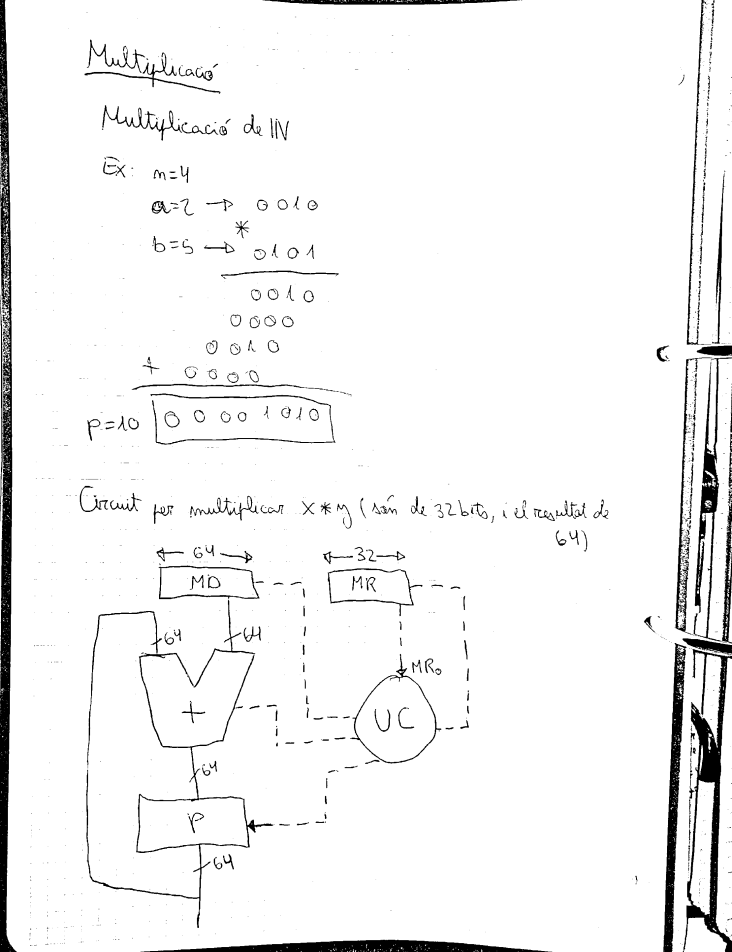 Multiplicació
Multiplicació de IN
Ex: n=4
a=2 → 0010
*
b=5 → 0101
0010
0000
0010
+ 0000
p=10 00001010
Circuit per multiplicar x*y (són de 32 bits, i el resultat de
64)
← 64 → ← 32 →
MD MR
64 64
MR₀
+ UC
64
P
64